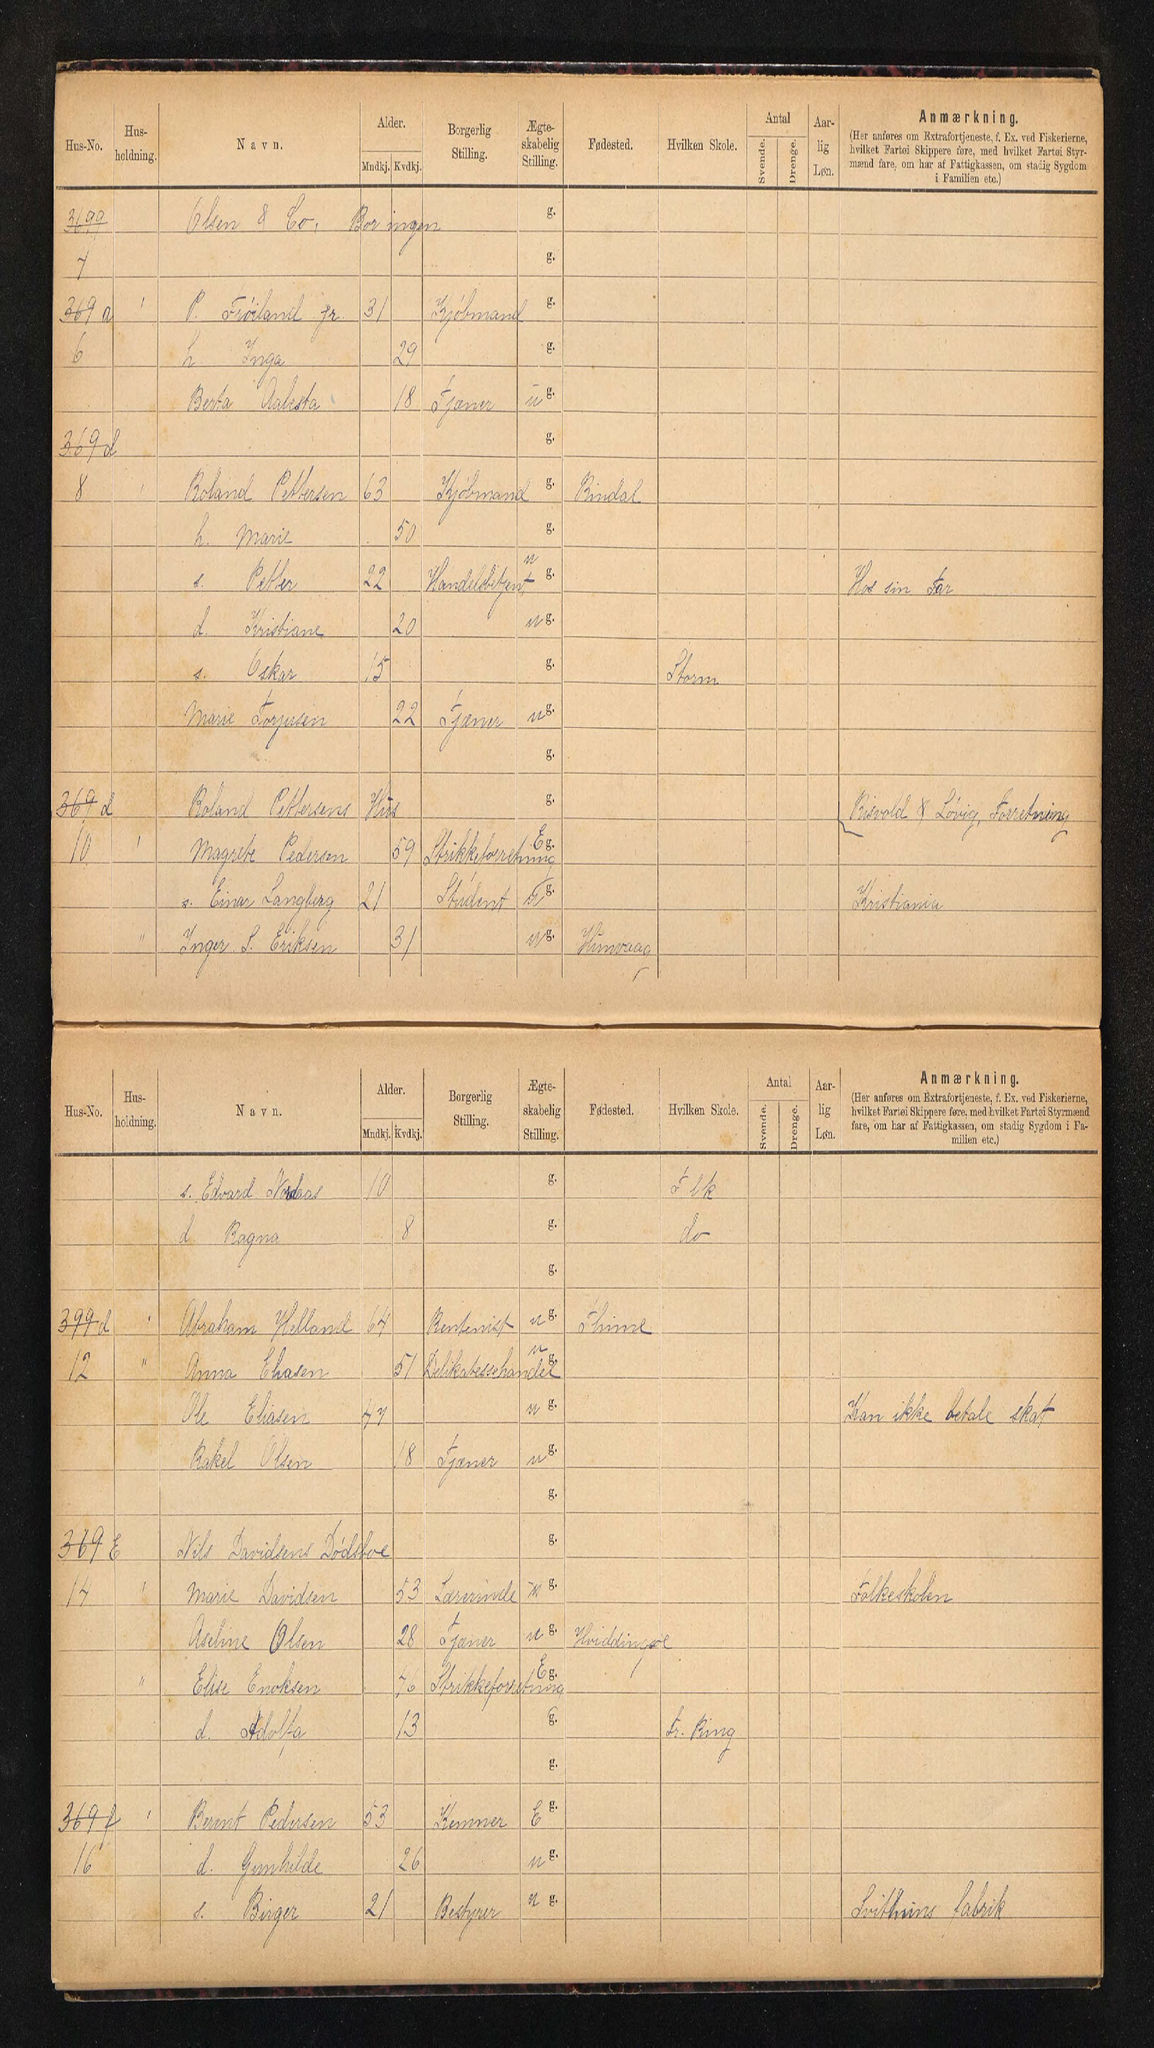 Hus-No. Hus-holdning. Navn. Alder. Mndkj. Kvdkj. Borgerlig Stilling. Ægte-skabelig Stilling. Fødested. Hvilken Skole. Antal Svende. Drenge. Aar-lig Løn. Anmærkning.
(Her anføres om Extrafortjeneste, f. Ex. ved Fiskerierne,
hvilket Fartøi Skippere føre, med hvilket Fartøi Styr-
mænd fare, om har af Fattigkassen, om stadig Sygdom
i Familien etc.)
Olsen & Co. g.
7 g.
369 a " P. Fröiland jr. 31 Kjöbmand g.
6 h Inga 29 g.
Berta 18 Tjæner u g.
369 d g.
8 " Roland Pettersen 63 Kjöbmand g. Bindal
h. Marie 50 g.
s. Petter 22 Handelsbetjent u g. Hos sin Far
d. Kristiane 20 u g.
s. Oskar 15 g. Storm
Marie Torjusen 22 Tjæner u g.
g.
369 d Roland Pettersens Hus g. Risvold & Lövig, Forretning
10 " Magrete Pedersen 59 Strikkeforretning E g.
s. Einar Langberg 21 Student u g. Kristiania
" Inger S. Eriksen 31 u g.
Hus-No. Hus-holdning. Navn. Alder. Mndkj. Kvdkj. Borgerlig Stilling. Ægte-skabelig Stilling. Fødested. Hvilken Skole. Antal Svende. Drenge. Aar-lig Løn. Anmærkning.
(Her anføres om Extrafortjeneste, f. Ex. ved Fiskerierne,
hvilket Fartøi Skippere føre, med hvilket Fartøi Styrmænd
fare, om har af Fattigkassen, om stadig Sygdom i Fa-
milien etc.)
s. Edvard 10 g. Flk
d Ragna 8 g. do
g.
399 d " Abraham Helland 64 Rentenist u g. Thime
12 " Anna Eliasen 51 Delikatessehandel u g.
Ole Eliasen 47 u g. Kan ikke betale skat
Rakel Olsen 18 Tjæner u g.
g.
369 E Nils Davidsens Dödsboe g.
14 " Marie Davidsen 53 Lærerinde u g. Folkeskolen
Aseline Olsen 28 Tjæner u g. Hviddingsöe
" Elise Enoksen 46 Strikkeforretning E g.
d. Adolfa 13 g. Fr. Ring
g.
369 f " Bernt Pedersen 53 Kemner E g.
16 d. Gunhilde 26 u g.
s. Birger 21 Bestyrer u g. Svithuns fabrik